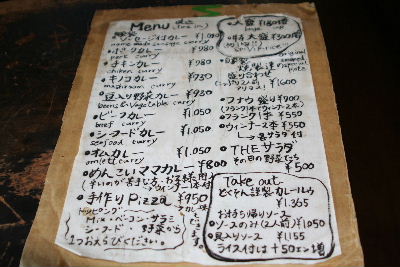 Menu
ソーセージ付カレー ¥1,050
home made sausage curry
ポークカレー ¥980
pork curry
チキンカレー ¥930
chiken curry
キノコカレー ¥730
mushroom curry
豆入り野菜カレー ¥930
beans & vegetable curry
ビーフカレー ¥1,050
beef curry
シーフードカレー ¥1,050
seafood curry
オムカレー ¥1,050
omlett curry
めんこいママカレー ¥800
手作りPizza ¥950
トッピング
Mix・ベーコン・サラミ
シーフード・野菜から
1つおえらびください。
大盛 ¥180増
特大盛 ¥300増
盛り合わせ
¥1600
フナウ盛り ¥900
フランク1本 ¥550
ウィンナー2本 ¥550
THEサラダ
その日の野菜たち
¥500
Take out
どくそん謹製カレールウ
¥1,365
お持ち帰りソース
ソースのみ(2人前) ¥1050
具入りソース ¥1,155
ライス付は+50エン増